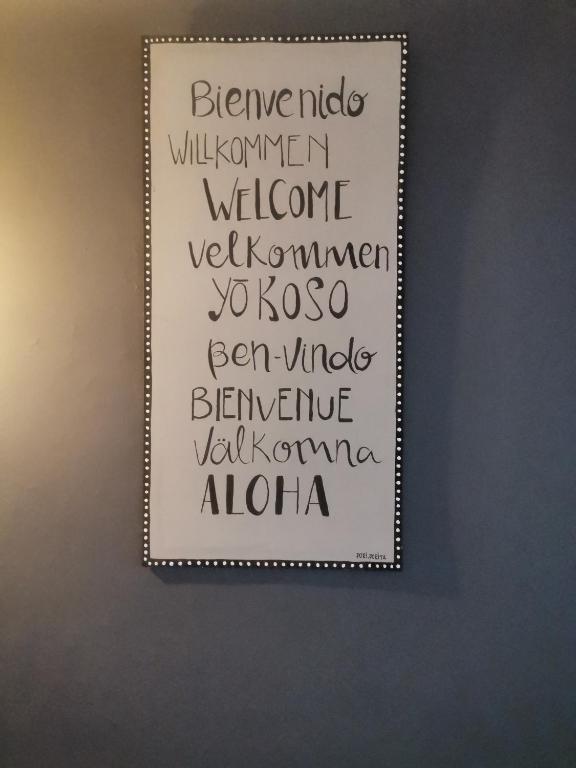 Bienvenido
WILLKOMMEN
WELCOME
velkommen
YŌKOSO
Ben-Vindo
BIENVENUE
Välkomna
ALOHA